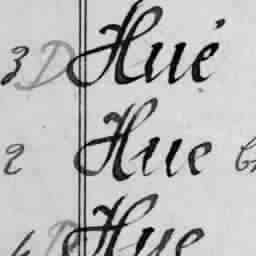 3 D Hué
2 Hue
D Hue